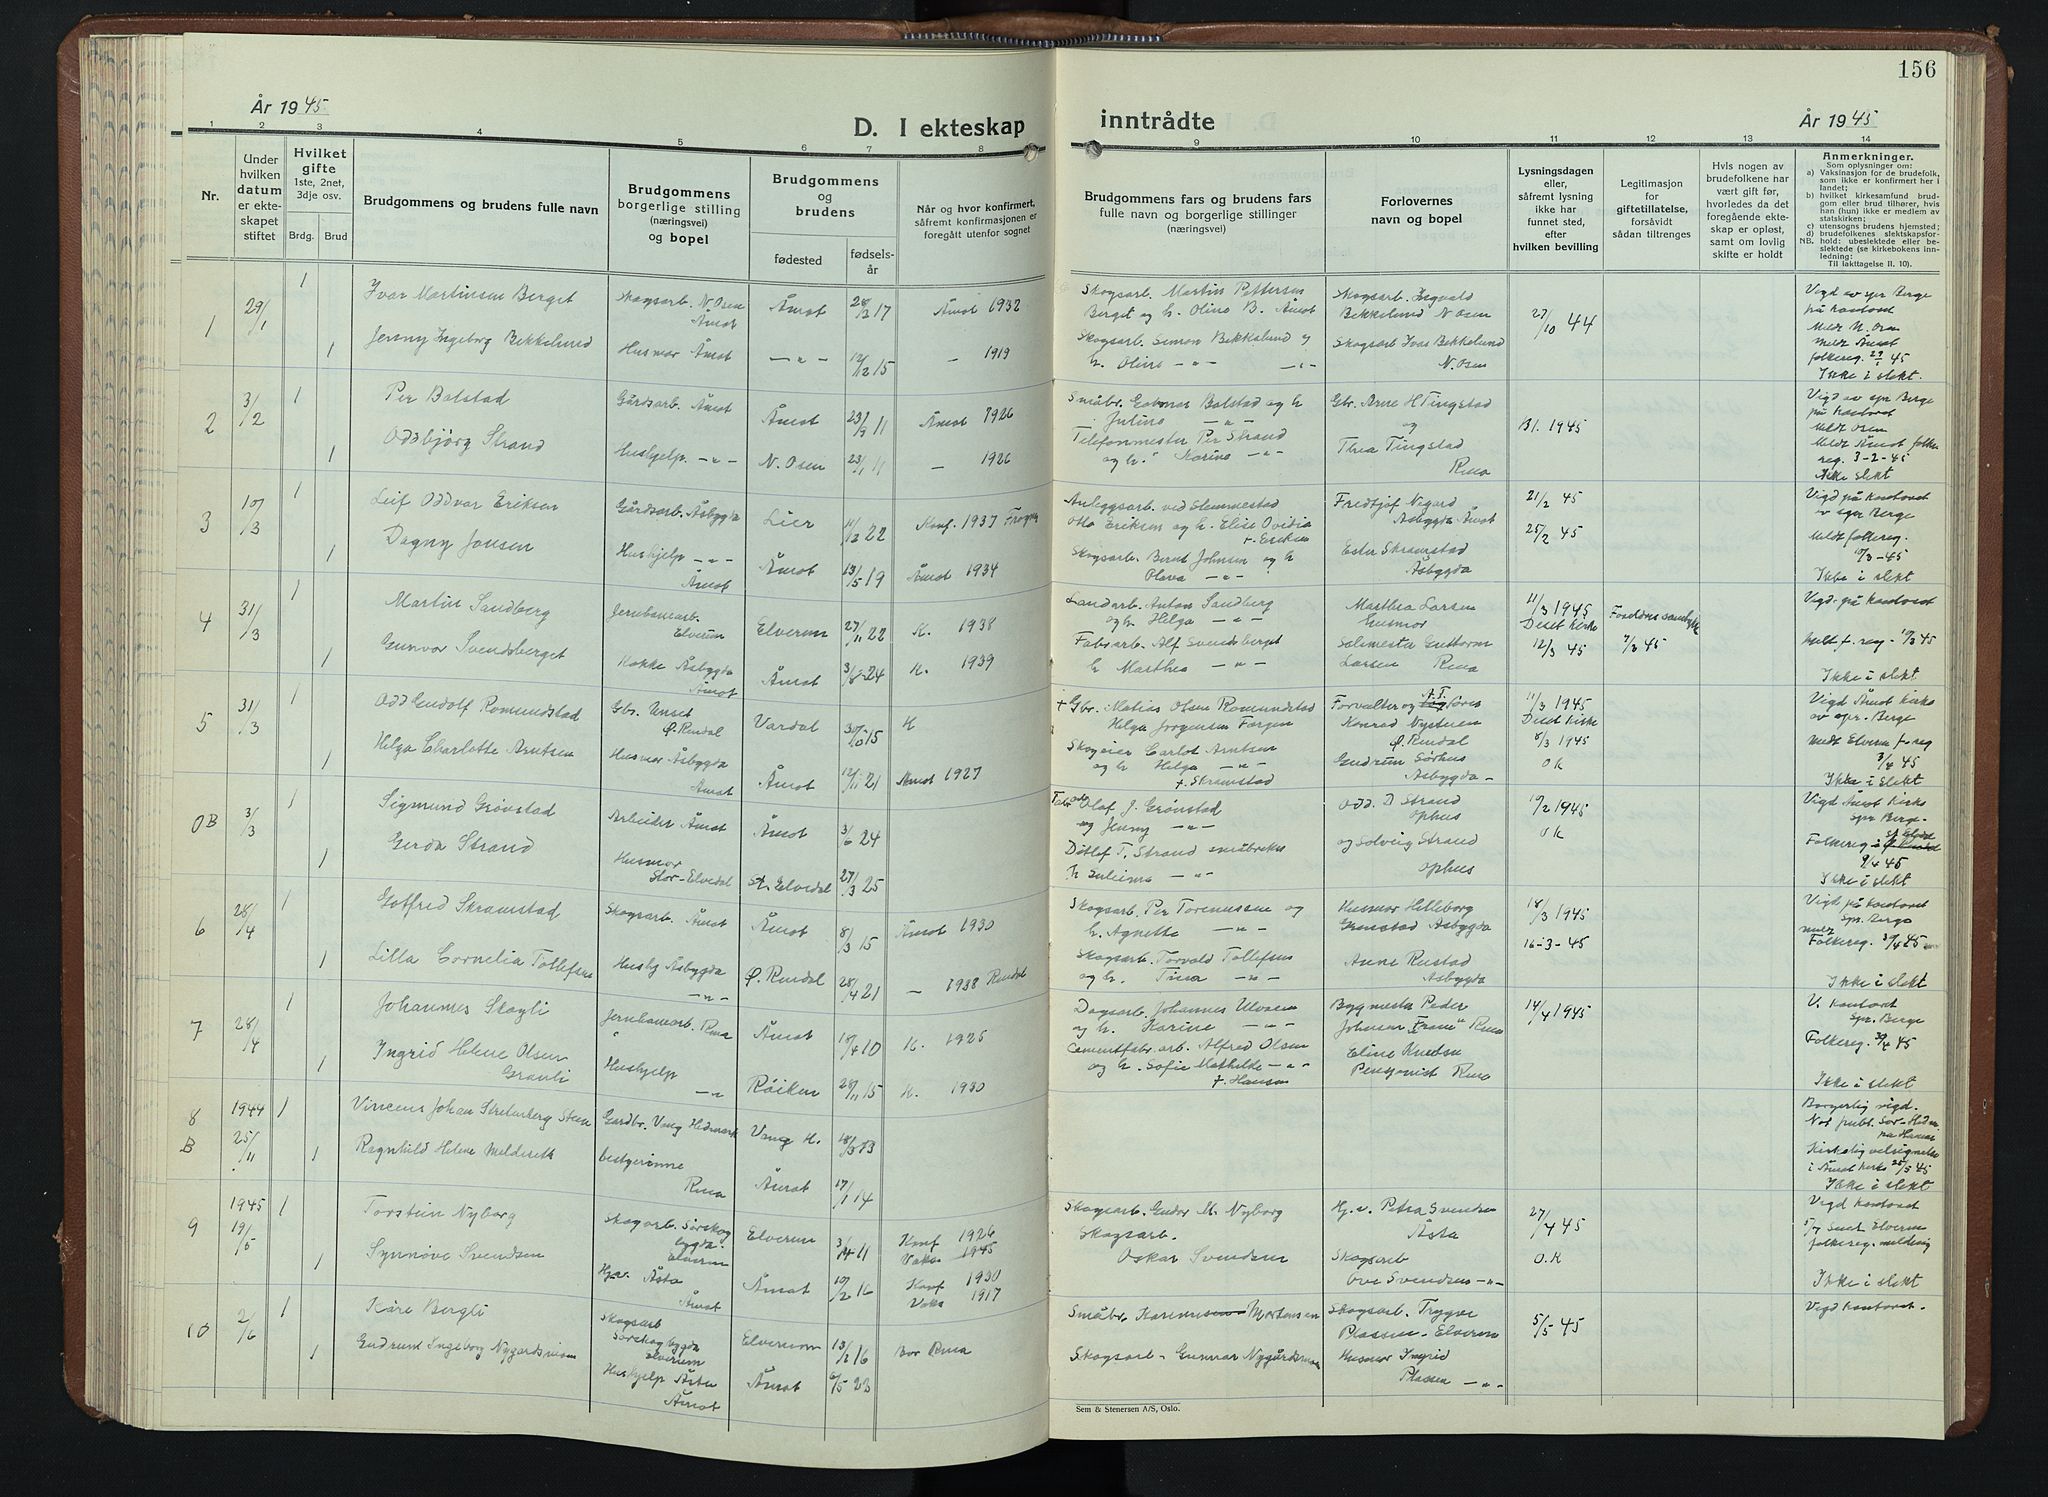 156
År 1945
D. I ekteskap
inntrådte
År 1945
1 2 3 4 5 6 7 8 9 10 11 12 13 14
Nr.
Under
hvilken
datum
er ekte-
skapet
stiftet
Hvilket
gifte
1ste, 2net,
3dje osv.
Brdg. Brud
Brudgommens og brudens fulle navn
Brudgommens
borgerlige stilling
(næringsvei)
og bopel
Brudgommens
og
brudens
fødested
fødsels-
år
Når og hvor konfirmert,
såfremt konfirmasjonen er
foregått utenfor sognet
Brudgommens fars og brudens fars
fulle navn og borgerlige stillinger
(næringsvei)
Forlovernes
navn og bopel
Lysningsdagen
eller,
såfremt lysning
ikke har
funnet sted,
efter
hvilken bevilling
Legitimasjon
for
giftetillatelse,
forsåvidt
sådan tiltrenges
Hvis nogen av
brudefolkene har
vært gift før,
hvorledes da det
foregående ekte-
skap er opløst,
samt om lovlig
skifte er holdt
Anmerkninger.
Som oplysninger om:
a) Vaksinasjon for de brudefolk,
som ikke er konfirmert her i
landet;
b) hvilket kirkesamfund brud-
gom eller brud tilhører, hvis
han (hun) ikke er medlem av
statskirken;
c) utensogns brudens hjemsted;
d) brudefolkenes slektskapsfor-
hold: ubeslektede eller be-
slektede (se kirkebokens inn-
ledning:
Til iakttagelse II. 10).
1 29/1 1 Ivar Martinsen Berget Skogsarb. N. Osen Åmot Åmot 28/2 17 Åmot 1932
1 Jenny Ingeborg Bekkelund Husmor Åmot — " — 12/12 15 — 1919
Skogsarb. Martin Pettersen
Berget og h. Oline B. Åmot
Skogsarb. Simon Bekkelund og
h. Oline — " — — " —
Skogsarb. Ingvald
Bekkelund N Osen
Skogsarb Ivar Bekkelund
N. Osen
27/10 44
Vigd av spr Berge
på kontoret
Meld N. Osn
meld Åmot
folkereg. 29/1 45
Ikke i slekt.
2 3/2 1 Per Bolstad Gårdsarb. Åmot Åmot 23/9 11 Åmot 1926
1 Oddbjørg Strand Hushjelp — " — N. Osen 23/1 11 — 1926
Julino — " —
Telefonmester Per Strand
og h. Karine — " —
Gbr. Arne H Tingstad
og
Thea Tingstad
Rena
Vigd av spr Berge
på kontoret
Meldt Osen
Meldt Åmot folke
reg. 3-2-45
Ikke slekt
3 10/3 1 Leif Oddvar Eriksen Gårdsarb. Åsbygda Lier 11/2 22 Konf. 1937 Frogn
1 Dagny Jonsen Hushjelp — " — Åmot Åmot 13/5 19 Åmot 1934
Anleggsarb. ved Slemmestad
Otto Eriksen og h. Elise Ovidia
f. Eriksen
Skogsarb. Bernt Johnsen og h
Olava — " —
Fredtjof Negard
Åsbygda Åmot
Ester Skramstad
Åsbygda
21/2 45
25/2 45
Vigd på kontoret
av spr Berge
Meldt folkereg.
10/3-45
Ikke i slekt
4 31/3 1 Martin Sandberg Jernbanearb. Elverum Elverum 27/11 22 K. 1938
1 Gunvor Svendsberget Kokke Åsbygda Åmot Åmot 3/8 24 K. 1939
Landarb. Anton Sandberg
og h. Helga — " —
Fabr.arb. Alf Svendsberget
h Marthea — " —
Marthea Larsen
Husmor
Salmester Guttorm
Larsen Rena
11/3 1945
Deset Kirke
12/3 45
7/3 45
Vigd på kontoret
Meldt f. reg.
Ikke i slekt
5 31/3 1 Odd Gudolf Romundstad Gbr. Unset Ø. Rendal Vardal 15 K
1 Helga Charlotte Arntsen Husmor Åsbygda Åmot Åmot 12/11 21 Åmot 1927
+ Gbr. Matias Olsen Romundstad
Helga Jørgensen
Skogeier Carlot Arntsen
og h Helga — " —
f. Skramstad
Forvalter og
Konrad Nystuen
Ø. Rendal
Gudrun Sørhus
Åsbygda
11/3 1945
Deset Kirke
8/3 1945
OK
Vigd Åmot Kirke
av spr. Berge
meldt Elverum f. reg
3/4 45
Ikke i slekt
B 3/3 1 Sigmund Grønstad Arbeider Åmot Åmot 3/6 24
1 Gerda Strand Husmor Stor-Elvedal St. Elvedal 27/3 25
Olaf J. Grønstad
og Jenny — " —
Ditlef T. Strand småbruker
h Juliane — " —
Odd. D Strand
Ophus
og Solveig Strand
Ophus
10/2 1945
OK
Vigd Åmot Kirke
spr Berge
9/4 45
Ikke i slekt
6 28/4 1 Gotfred Skramstad Skogsarb. Åmot Åmot 8/3 15 Åmot 1930
1 Lilla Cornelia Tollefsen Husby Åsbygda — " — Ø. Rendal 28/4 21 — 1938 Rendal
Skogsarb. Per Torenussen og
h. Agnethe — " —
Skogsarb. Torvald Tollefsen
og h. Tina — " —
Husmor Hilleborg
Grønstad Åsbygda
Anne Rustad
Åsbygda
18/3 1945
16-3-45
Vigd på kontoret
Spr. Berge
meld
Folkereg. 30/4 45
Ikke i slekt
7 28/4 1 Johannes Skogli Jernbanearb. Rena Åmot 10/4 10 K. 1925
1 Ingrid Helene Olsen Granli Hushjelp — " — Røiken 28/11 15 K. 1930
Dagsarb. Johannes Ulvoen
og h. Karine — " —
Cementfabr. arb. Alfred Olsen
og h. Sofie Mathilde — " —
f. Hansen
Bygmester Peder
Johnsen "Fram" Rena
Eline Knutsen
Pensjonist Rena
14/4 1945
V. kontoret
Spr. Berge
Folkereg. 30/4 45
Ikke i slekt
8 B 1944 25/11 1 Vincens Johan Strelenberg Steen Gardbr. Vang Hedmark Vang H. 83
1 Ragnhild Helene Melderett bestyrerinne Rena Åmot 17/1 14
Borgerlig vigd.
Not. publ. Sør-Hedm.
på Hamar
Kirkelig velsignelse
i Åmot kirke 25/5 45
Ikke i slekt
9 1945 19/5 1 Torstein Nyborg Skogarb. Sørskogbygda. Elverum Elverum 11 Konf 1926 Vaks 1945
1 Synnøve Svendsen Hj.v. Åsta Åmot Åmot 10/2 16 Konf 1930 Vaks 1917
Skogsarb. Gudor M. Nyborg
Skogsarb.
Oskar Svendsen
Hj. v. Petra Svendsen
Åsta
Skogsarb
Ove Svendsen — " —
27/4 45
O.K
Vigd kontoret
5/7 Sendt Elverum
folkereg. melding
Ikke i slekt
10 2/6 1 Kåre Bergli Skogsarb Sørskogbygda Elverum Elverum 13/2 16 Bor Rena
1 Gudrun Ingeborg Nygårdsmoen Hushjelp Åsta Åmot Åmot 6/5 23
Småbr. Karenus Mortensen
Skogsarb - Gunnar Nygårdsmoen
Skogsarb. Trygve
Plassen - Elverum
Husmor Ingrid
Plassen — " —
5/5 45
Vigd kontoret.
Sem & Stenersen A/S, Oslo.